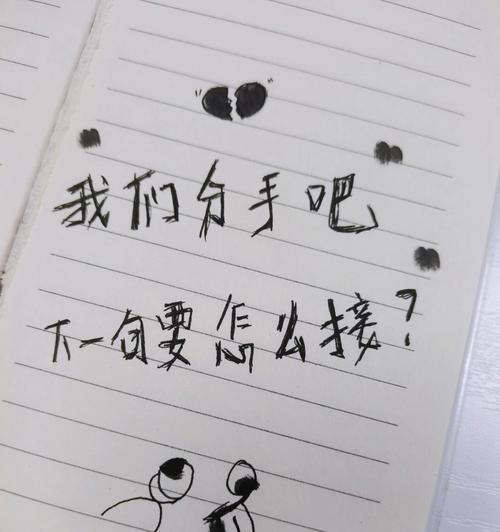 我们分手吧
下一句要怎么接?